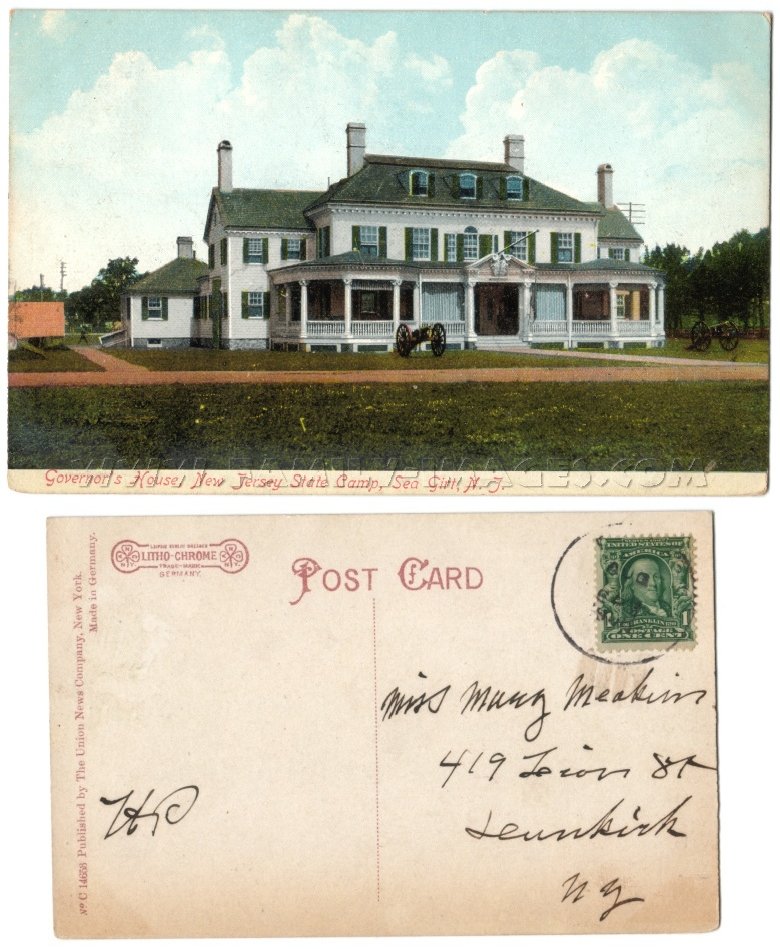 Governor's House, New Jersey State Camp, Sea Girt, N. J.
LEIPZIG BERLIN DRESDEN
LITHO-CHROME
TRADE-MARK
GERMANY.
POST CARD
UNITED STATES OF AMERICA
FRANKLIN
1 1
POSTAGE
ONE CENT
Nº C 14658 Published by The Union News Company, New York.
Made in Germany.
Miss Mary Meakin
419 Lion St
Dunkirk
NY
HP